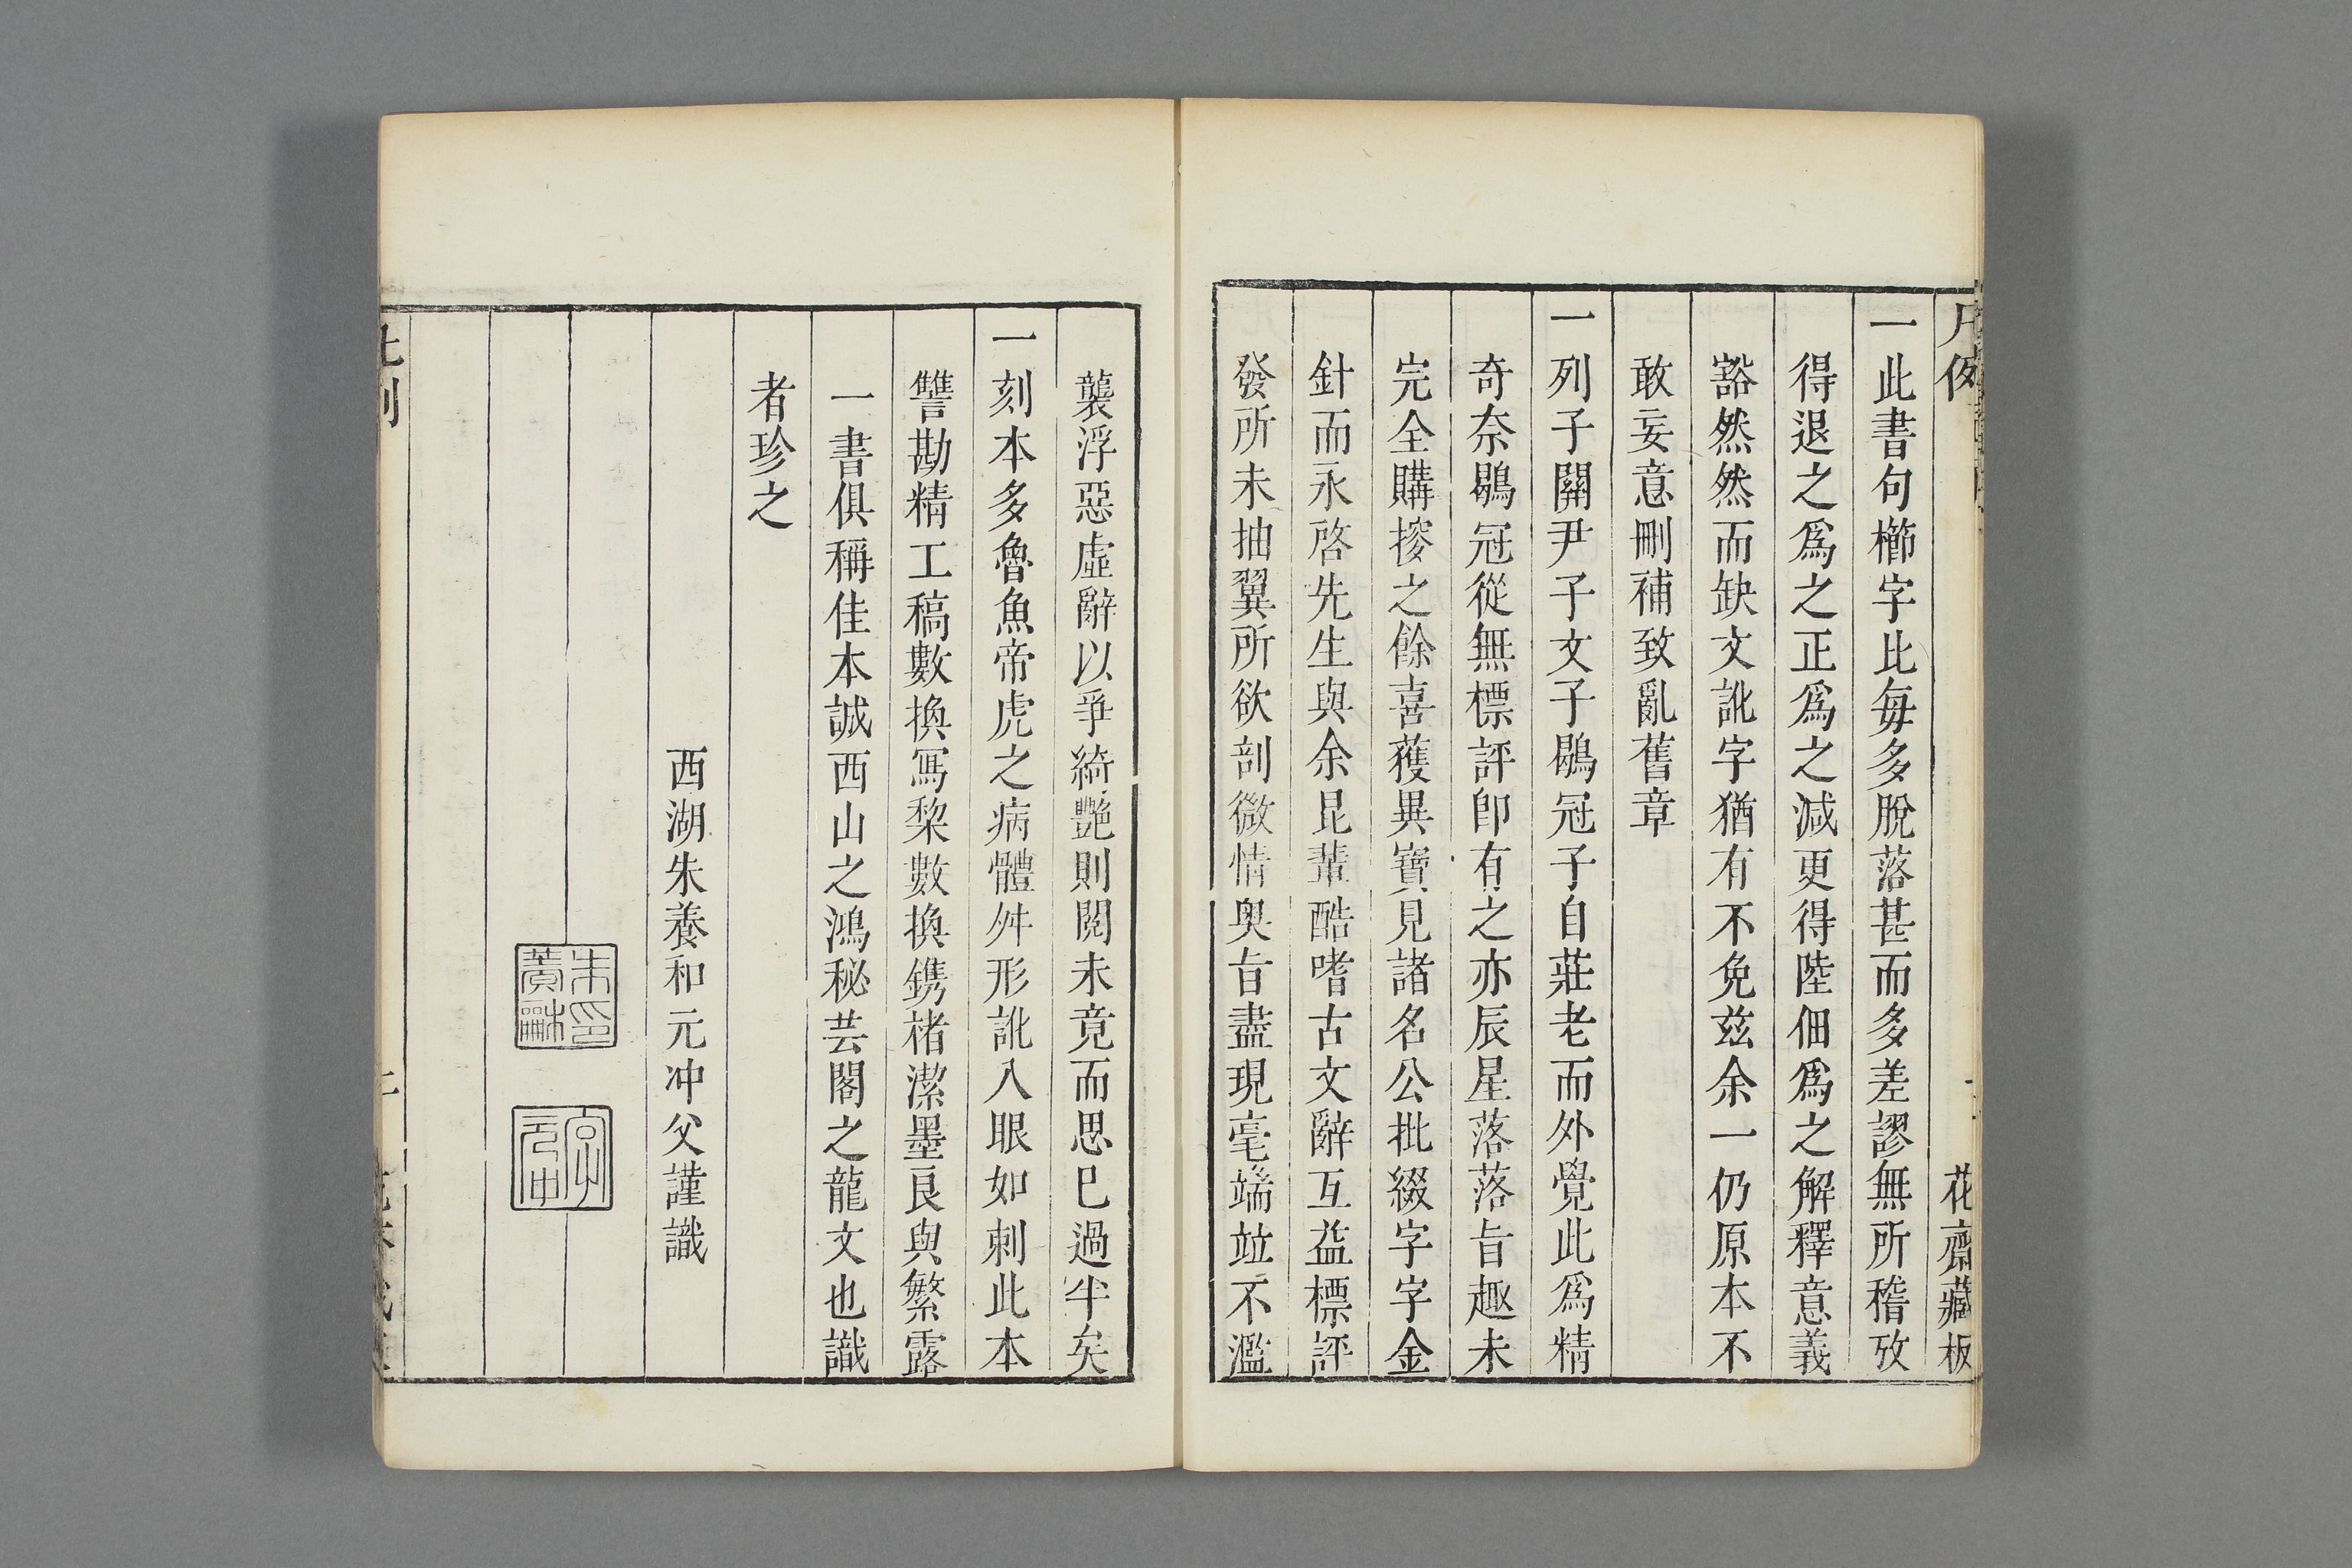 凡例
花齋藏板
一此書句櫛字比每多脫落甚而多差謬無所稽攷
得退之爲之正爲之減更得陸佃爲之解釋意義
豁然然而缺文訛字猶有不免兹余一仍原本不
敢妄意刪補致亂舊章
一列子關尹子文子鶡冠子自莊老而外覺此爲精
奇奈鶡冠從無標評即有之亦辰星落落旨趣未
完全購㨯之餘喜獲異寶見諸名公批綴字字金
針而永啓先生與余昆輩酷嗜古文辭互益標評
發所未抽翼所欲剖微情奥旨盡現毫端竝不濫
襲浮惡虛辭以爭綺艷則閱未竟而思已過半矣
一刻本多魯魚帝虎之病體舛形訛入眼如刺此本
讐勘精工稿數換冩棃數換鐫楮潔墨良與繁露
一書俱稱佳本誠西山之鴻秘芸閣之龍文也識
者珍之
西湖朱養和元冲父謹識
朱印養龢
字元冲